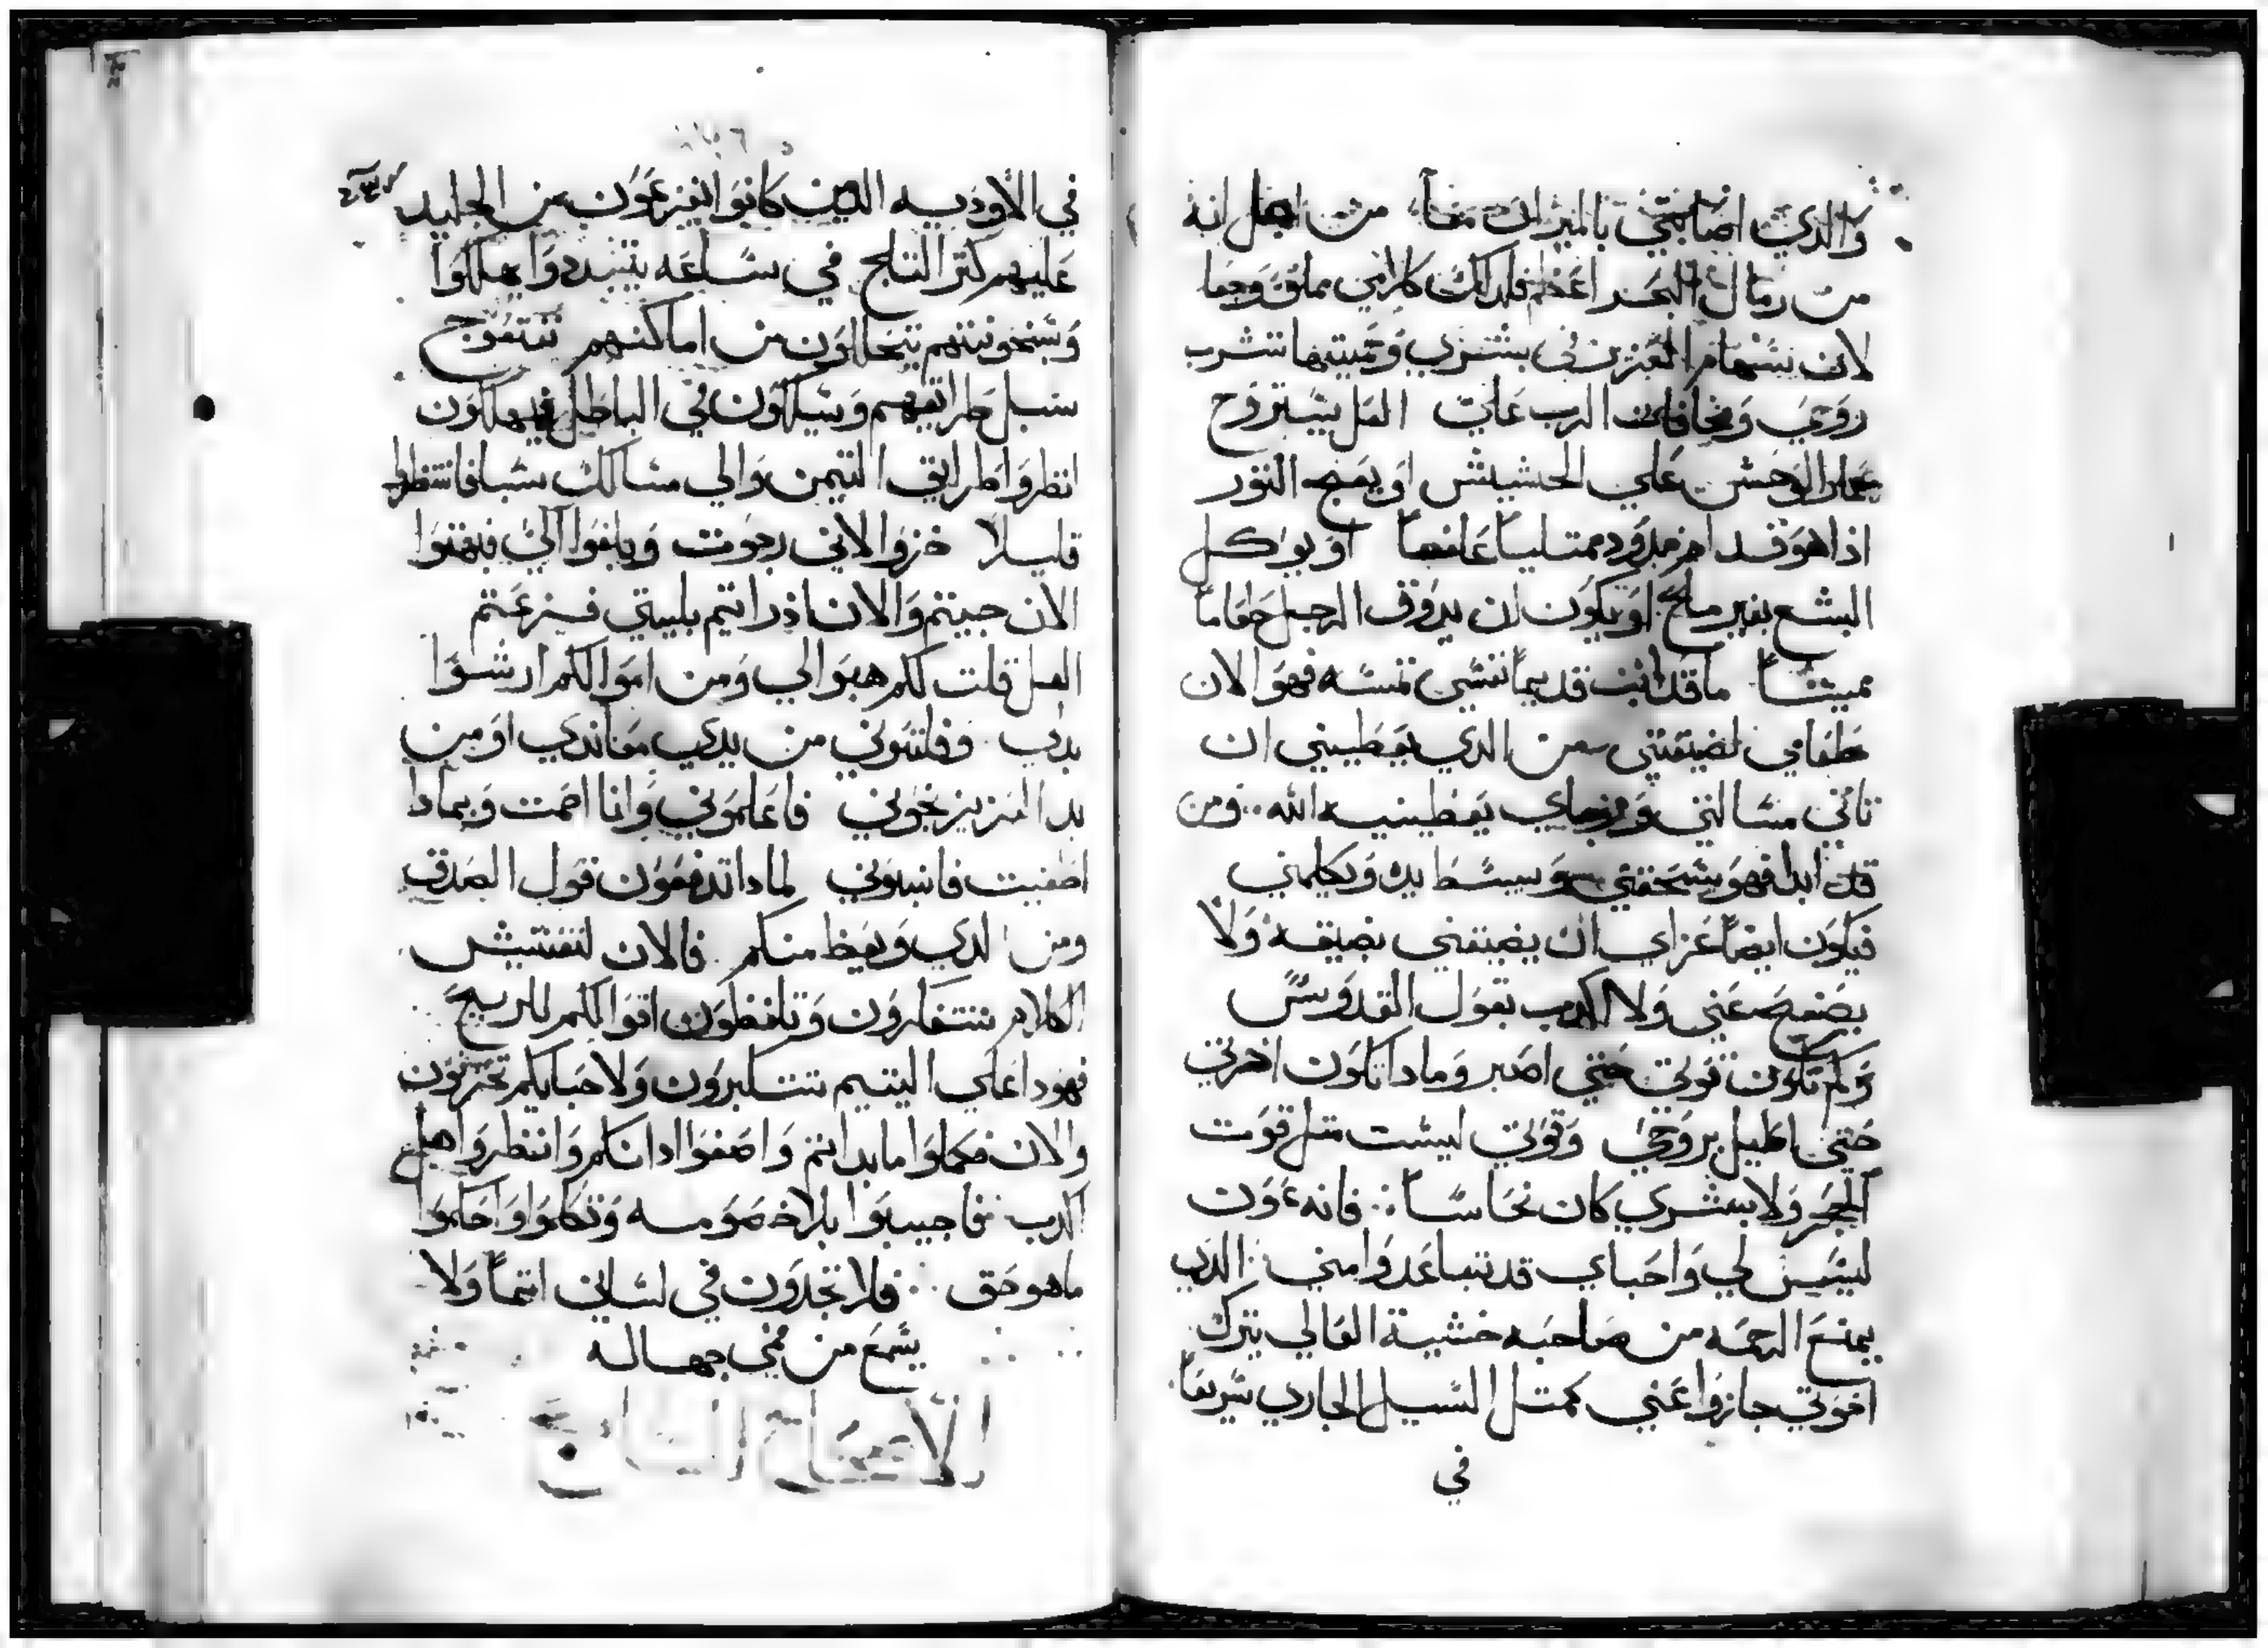 والذي اصابتني بالميزان معاً من اجل انه
من رمال البحر اعظم فلدلك كلامي مملوق وجعا
لان سهام العزيز في بشري وحميتها تشرب
روحي ومخافات الرب علي العل يستروح
عمار الوحش علي الحشيش او يعج التور
اذا هو قدام مدود ممتلياً علفاً او يواكل
البشع بغير ملح او يكون ان يدوق الرجل طعاماً
مميتاً ما قد ابت قديماً نفسي تمسه فهو الان
طعامي لضيقتي من الدي يعطيني ان
تاتي مسالتي ورجاي يعطينيه الله ومن
قد ابدا فهو يسحقني ويبسط يده ويكلمني
فيكون ايضاً عزاي ان يضيقني بضيقه ولا
يصفح عني ولا اكدب بقول القدوس
وكم تكون قوتي حتي اصبر وما دا تكون اخرتي
حتي اطيل بروحي وقوتي ليست متل قوت
الحجر ولا بشري كان نحاساً فانه عون
ليس لي واحباي قد تباعدوا مني الدي
يمنع الرحمه من صاحبه خشية العالي يترك
اخوتي جازوا عني كمتل السيل الجاري سريعاً
في
في الاوديه الدين كانوا يفزعون من الجليد
عليهم كتر التلج في ساعه يتبددوا يهلكوا
وسخونتهم يتحللون من اماكنهم تتعوج
سبل طرايقهم ويسلكون في الباطل فيهلكون
انظروا طرايق التيمن والي مسالك سبا فانتظروا
قليلاً خزوا لاني رجوت وبلغوا الي فبهتوا
الان جيتم والان اذ رايتم بليتي فزعتم
العل قلت لكم هبوا لي ومن اموالكم ارشوا
بدلي وفلتوني من يدي معاندي او من
يد العزيز نجوني فاعلموني وانا اصمت وبمادا
اطغيت فانبوني لمادا تدفعون قول الصدق
ومن الدي ويعظ منكم فالان لتفتيش
الكلام تتفكرون وتلفظون اقوالكم للريح
فهودا علي اليتيم تتكبرون ولاحبايكم تحزنون
والان فكملوا ما بداتم واصغوا ادانكم وانظروا هل
اكدب فاجيبوا بلا خصومه وتكلموا واحكموا
ما هو حق فلا تجدون في لساني اتماً ولا
يسمع من فمي جهاله
الاصحاح السابع